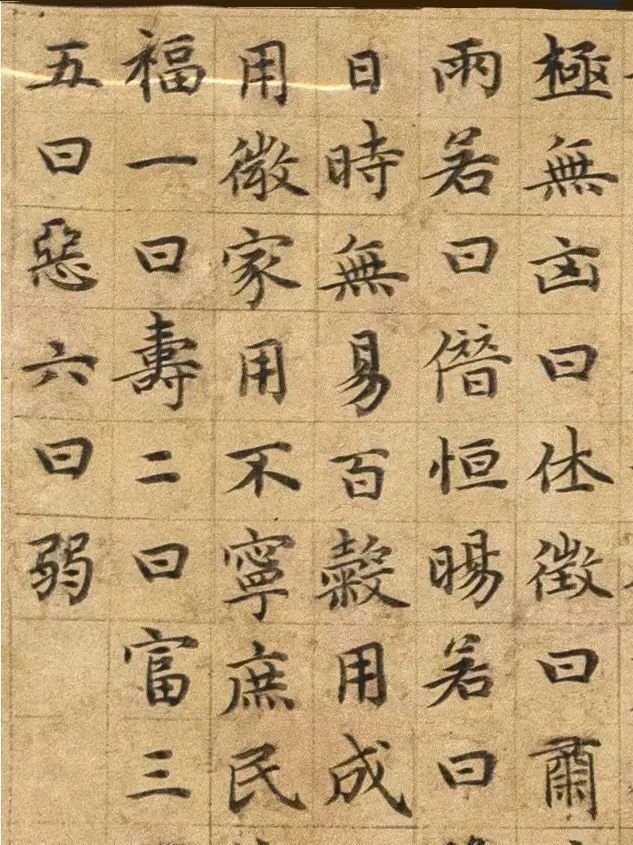 極無㐫曰休徵曰肅
雨若曰僭恒暘若曰
日時無易百穀用成
用微家用不寧庶民
福一曰壽二曰富三
五曰惡六曰弱